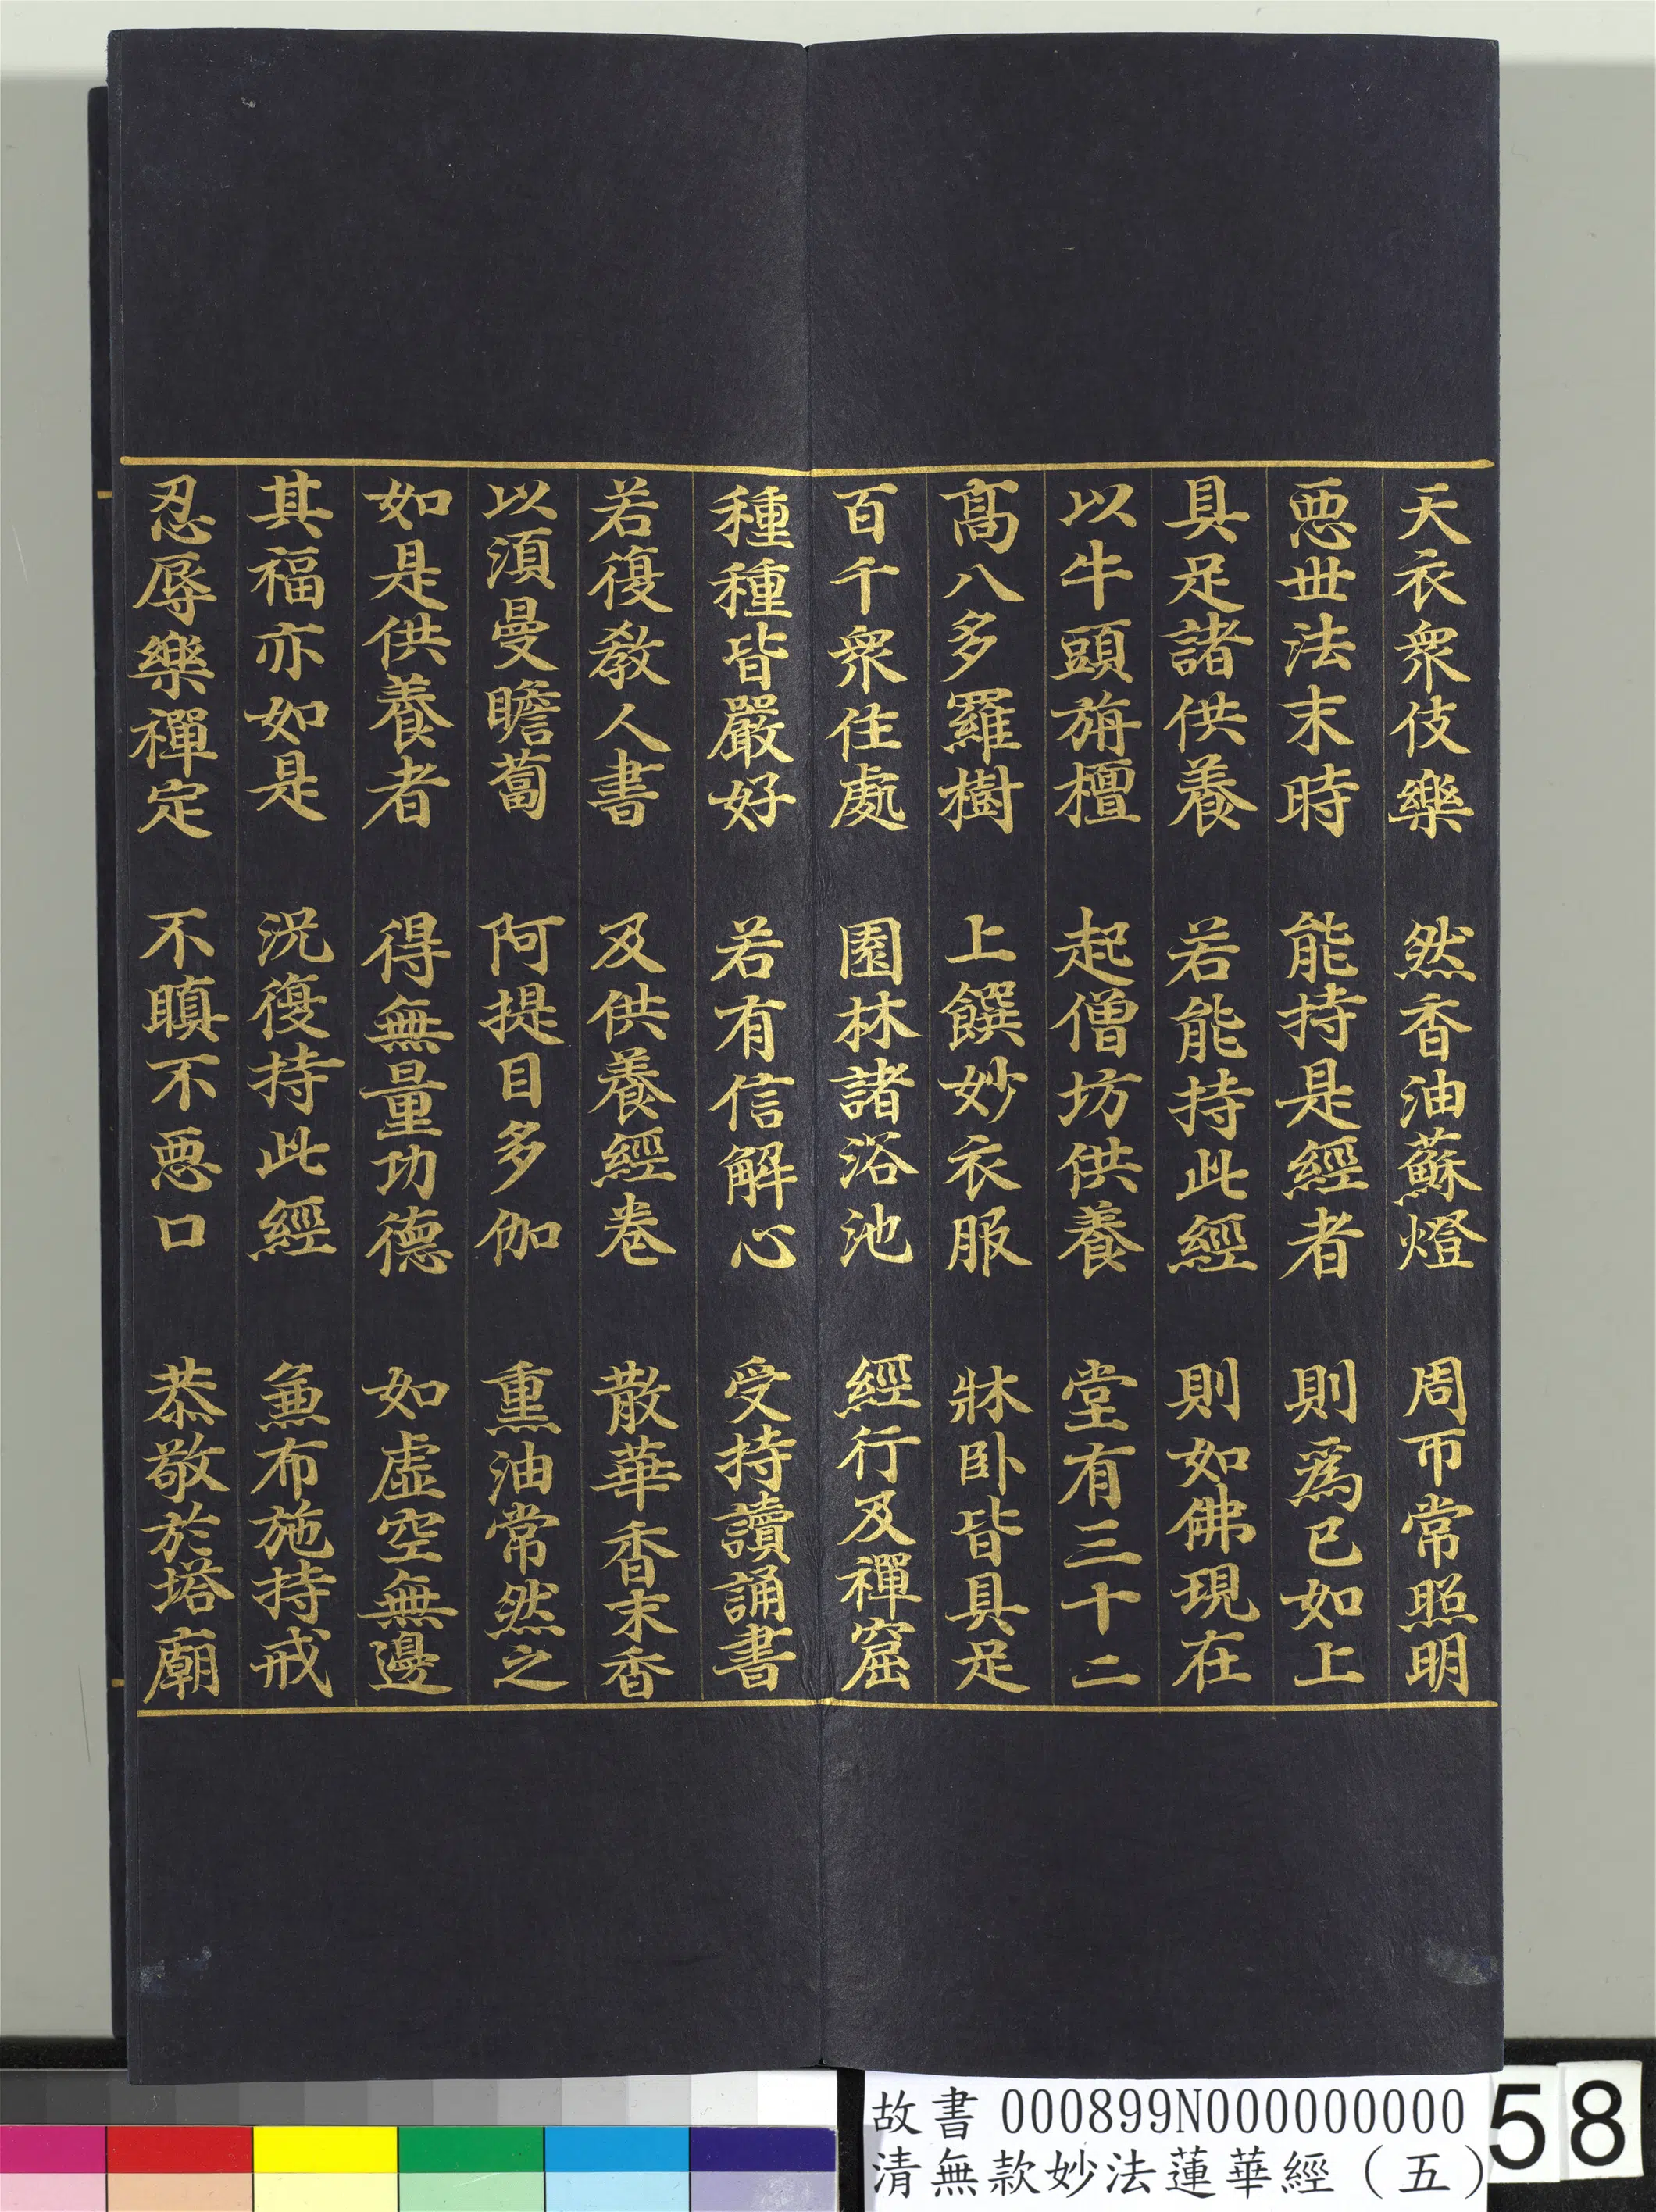 天衣衆伎樂　然香油蘇燈　周帀常照明
惡世法末時　能持是經者　則爲已如上
具足諸供養　若能持此經　則如佛現在
以牛頭旃檀　起僧坊供養　堂有三十二
髙八多羅樹　上饌妙衣服　牀臥皆具足
百千衆住處　園林諸浴池　經行及禪窟
種種皆嚴好　若有信解心　受持讀誦書
若復教人書　及供養經卷　散華香末香
以須曼瞻蔔　阿提目多伽　熏油常然之
如是供養者　得無量功德　如虛空無邊
其福亦如是　況復持此經　兼布施持戒
忍辱樂禪定　不瞋不惡口　恭敬於塔廟
故書 000899N000000000
清無款妙法蓮華經（五）
58